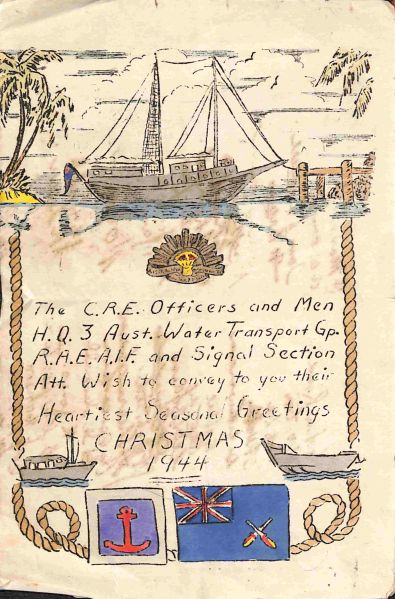 The C.R.E. Officers and Men
H.Q. 3 Aust. Water Transport Gp.
R.A.E. A.I.F. and Signal Section
Att. Wish to convey to you their
Heartiest Seasonal Greetings
CHRISTMAS
1944